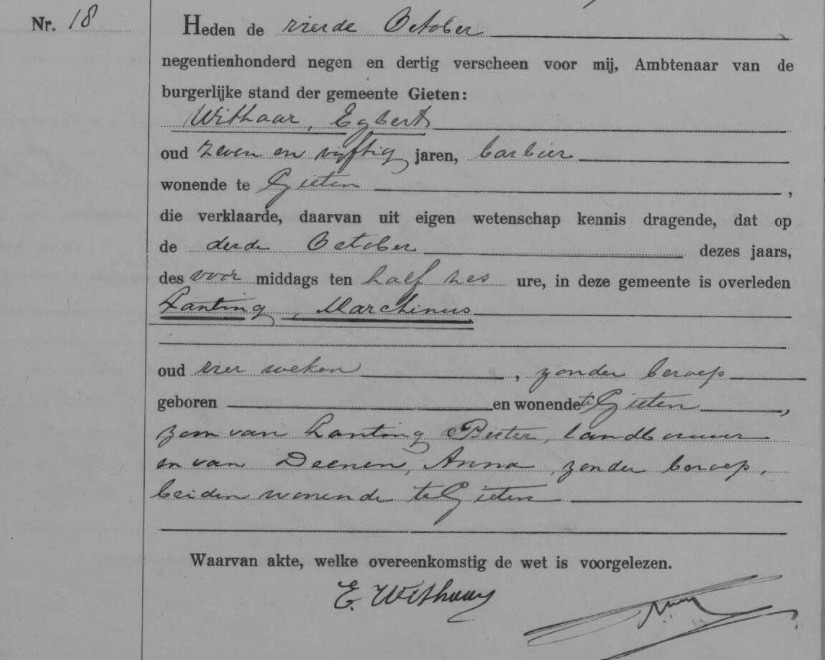 Nr. 18
Heden de vierde October
negentienhonderd negen en dertig verscheen voor mij, Ambtenaar van de
burgerlijke stand der gemeente Gieten:
Withaar, Egbert
oud zeven en vijftig jaren, barbier
wonende te Gieten ,
die verklaarde, daarvan uit eigen wetenschap kennis dragende, dat op
de derde October dezes jaars,
des voor middags ten half zes ure, in deze gemeente is overleden
Lanting, Marchinus
oud vier weken , zonder beroep
geboren en wonende te Gieten ,
zoon van Lanting Pieter, landbouwer
en van Deenen, Anna, zonder beroep,
beiden wonende te Gieten
Waarvan akte, welke overeenkomstig de wet is voorgelezen.
E. Withaar